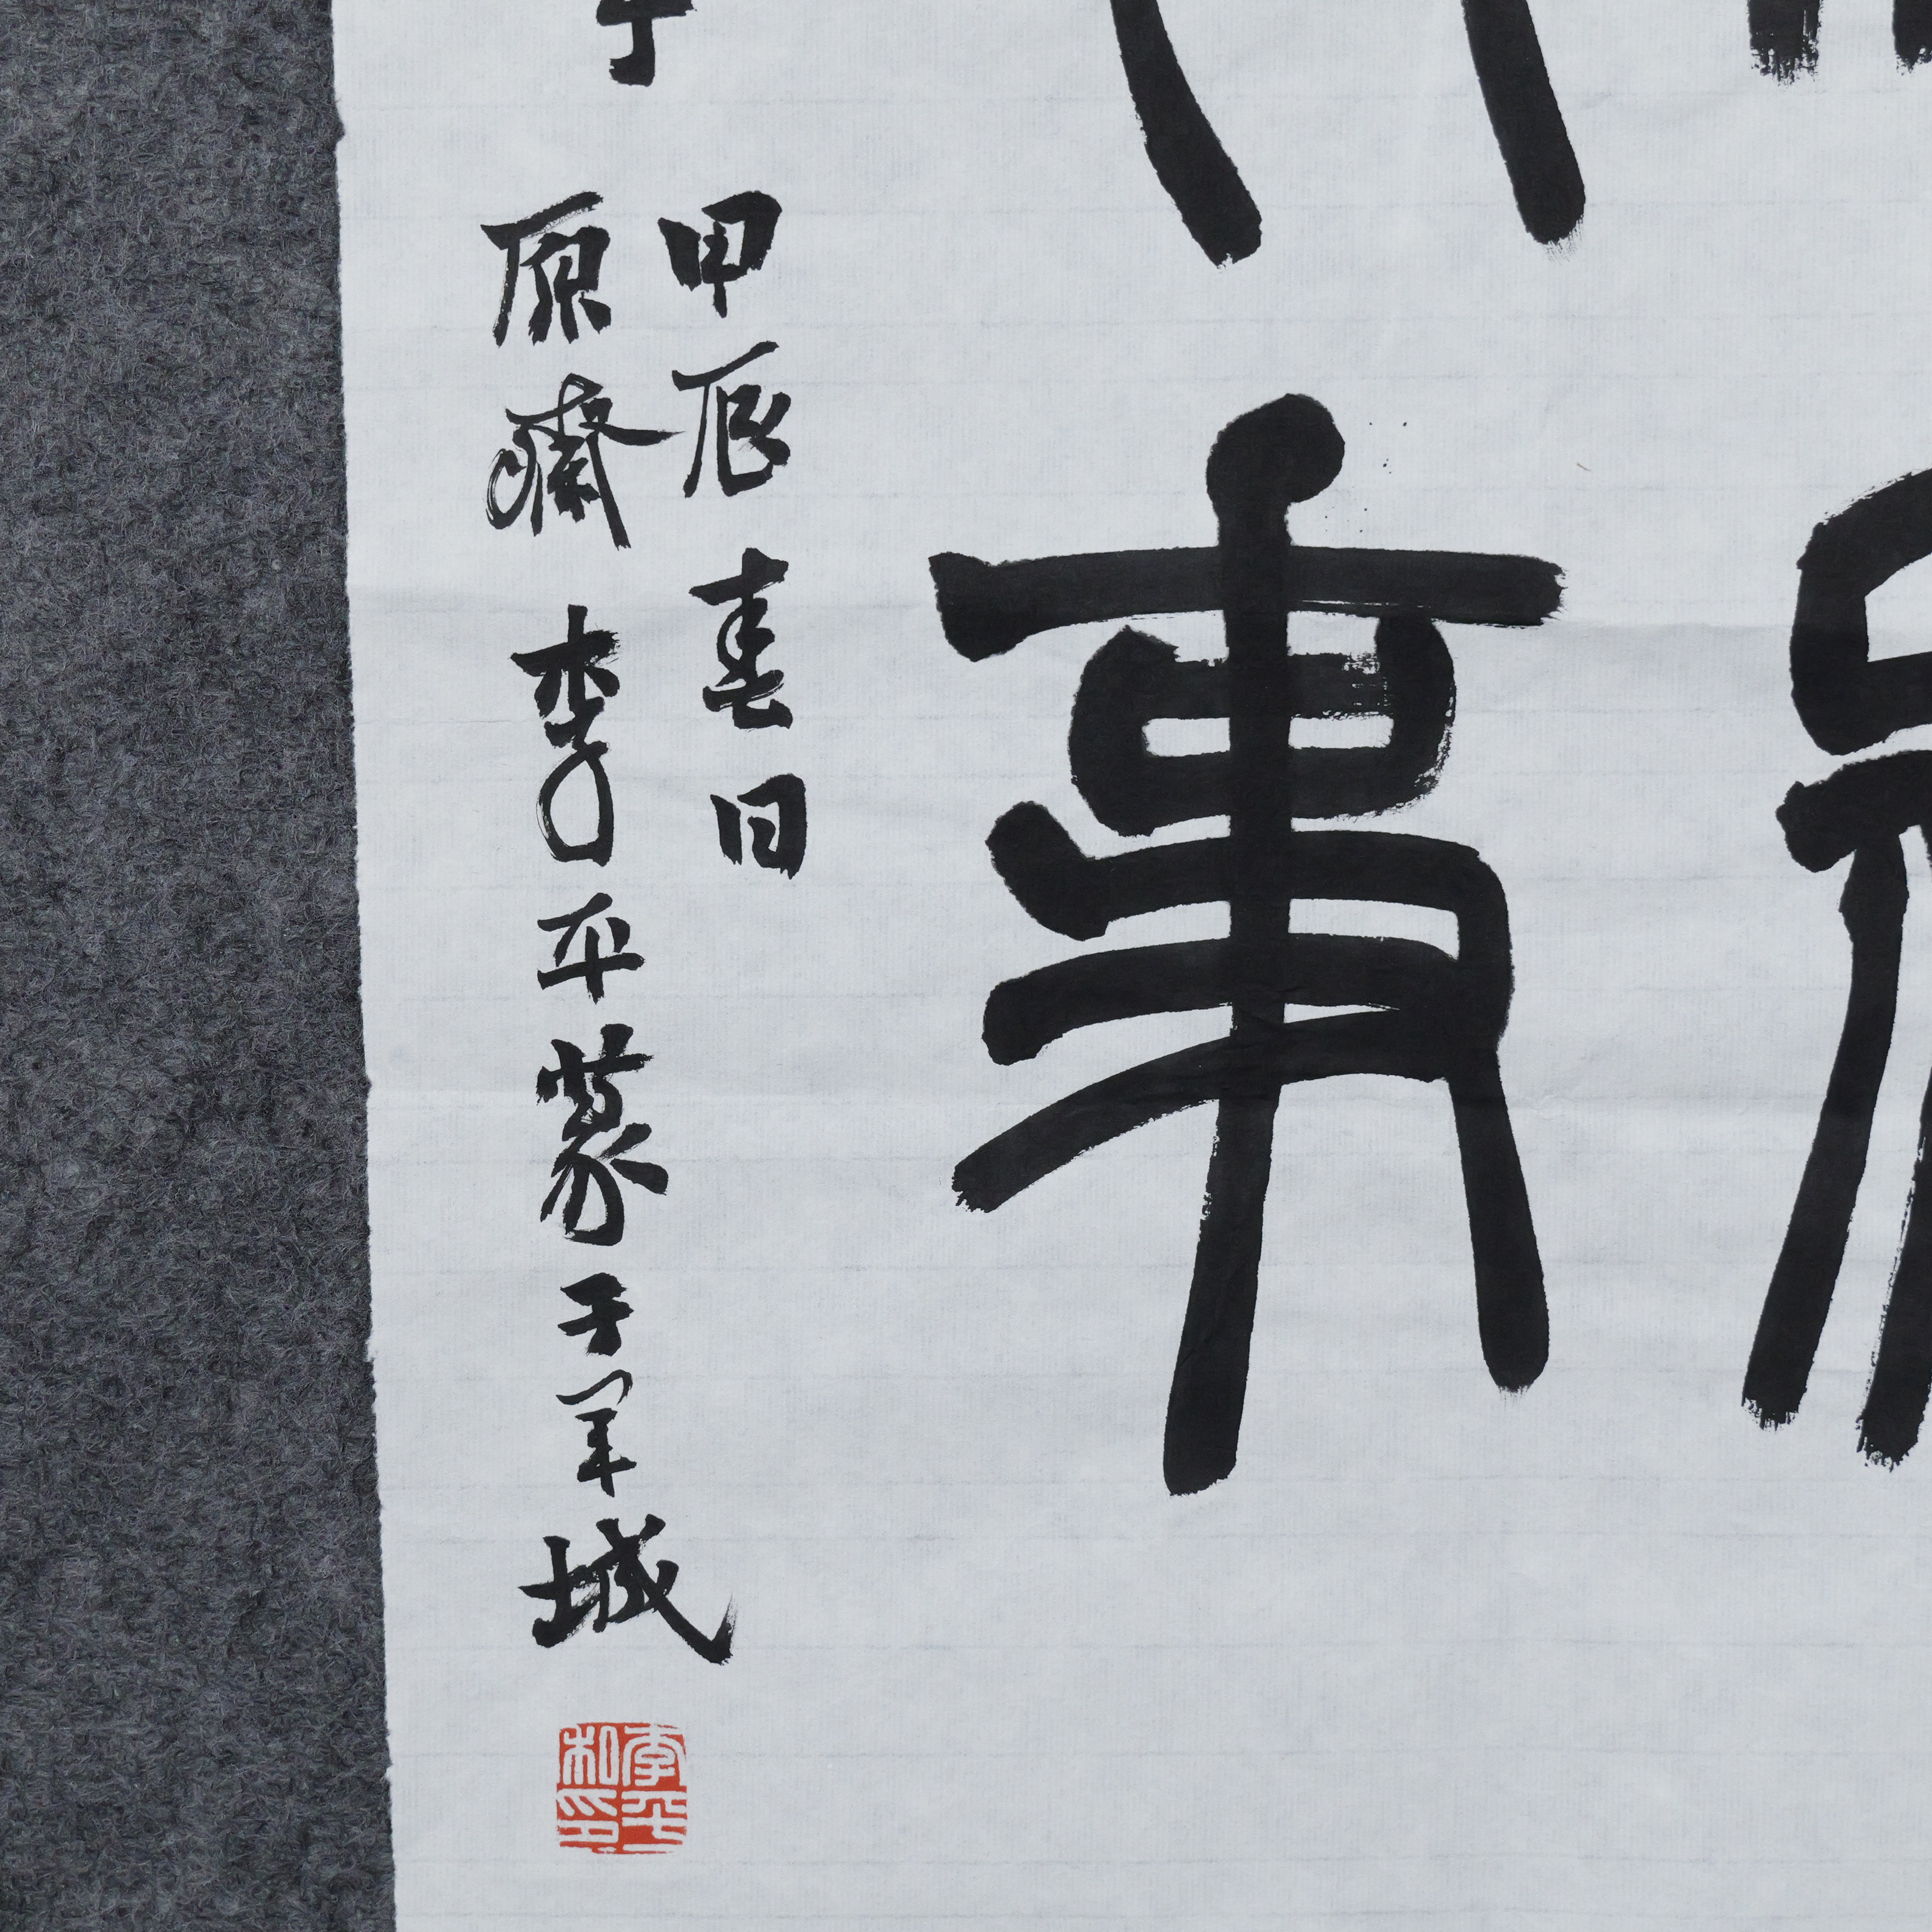 事
甲辰春日
原齋李平篆于羊城
李平私印